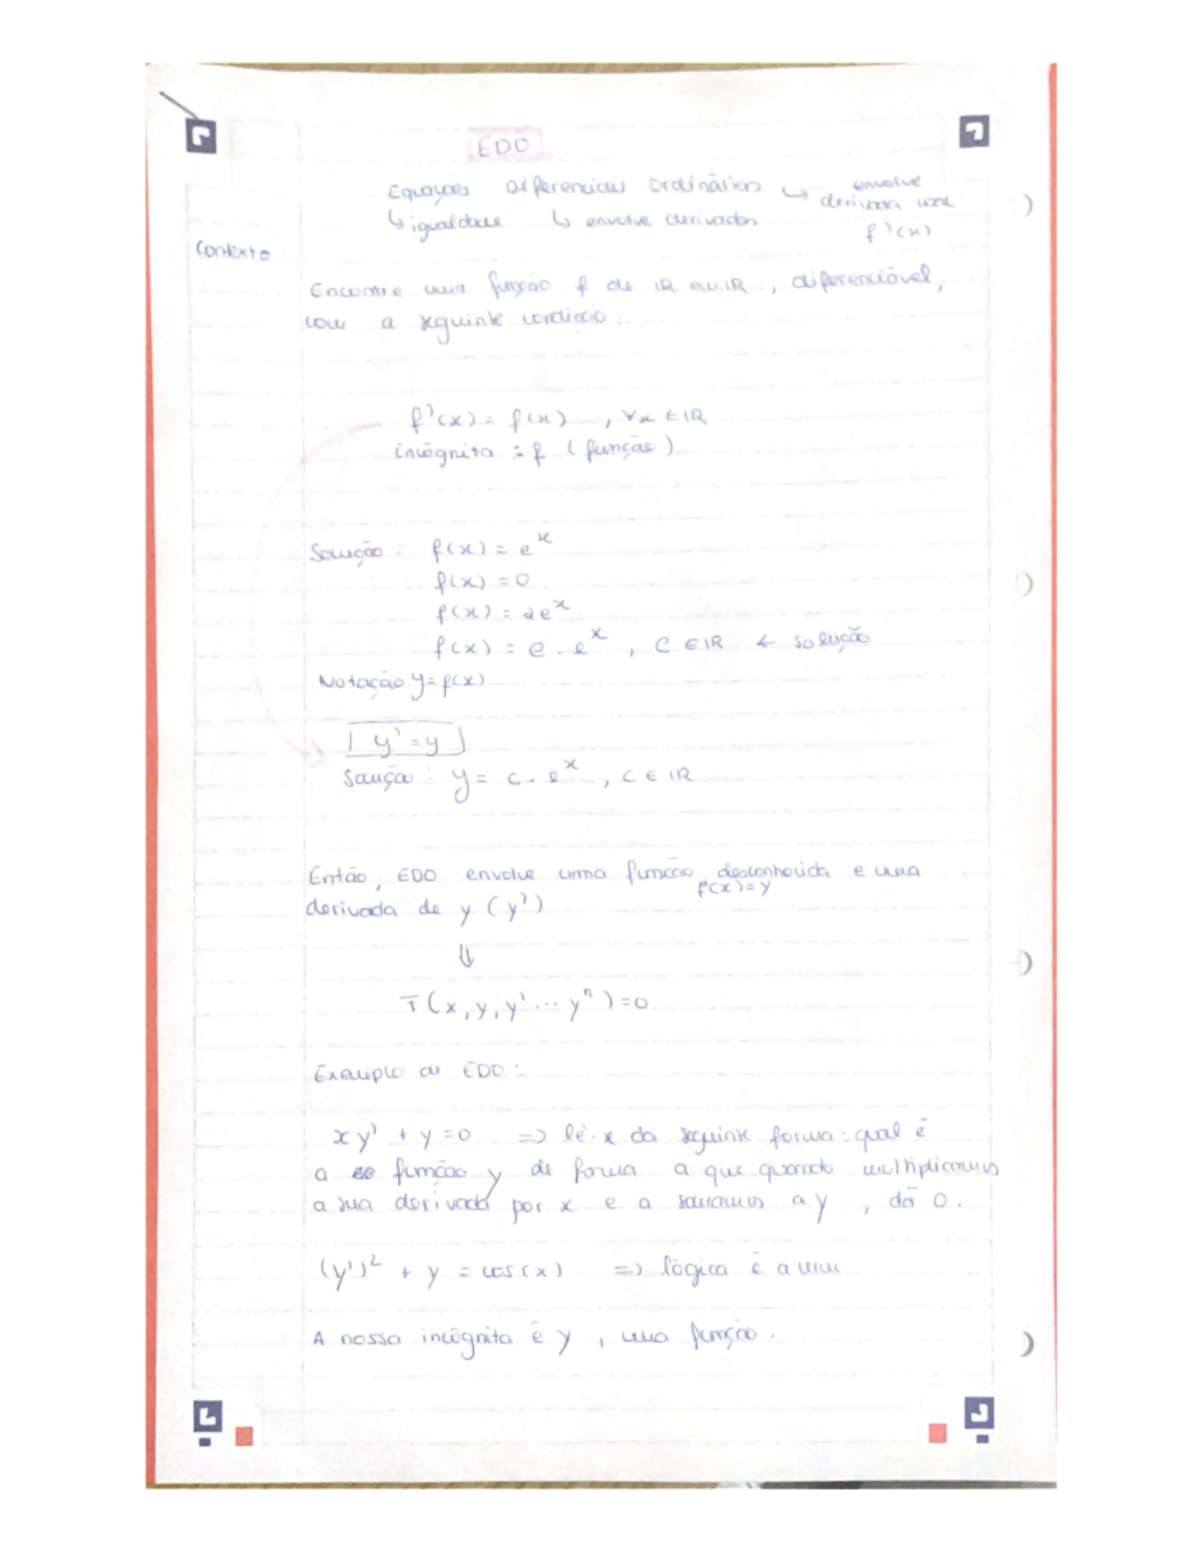 EDO
Equações diferenciais ordinárias ↪ envolve
derivada uma
↳ igualdade ↳ envolve derivadas
f'(x)
Contexto
Encontre uma função f de IR em IR, diferenciável,
com a seguinte condição:
f'(x) = f(x) , ∀x ∈ IR
incógnita : f (função)
Solução : f(x) = e^x
f(x) = 0
f(x) = 2e^x
f(x) = e . e^x , C ∈ IR ← solução
Notação y = f(x)
y' = y
Solução : y = c . e^x , C ∈ IR
Então, EDO envolve uma função desconhecida e uma
f(x)=y
derivada de y (y')
⇓
F(x, y, y' ... y^n) = 0
Exemplo de EDO :
xy' + y = 0 => lê-x da seguinte forma: qual é
a função y de forma a que quando multiplicamos
a sua derivada por x e a somamos a y , dá 0.
(y')² + y = cos(x) => lógica é a mm
A nossa incógnita é y , uma função.